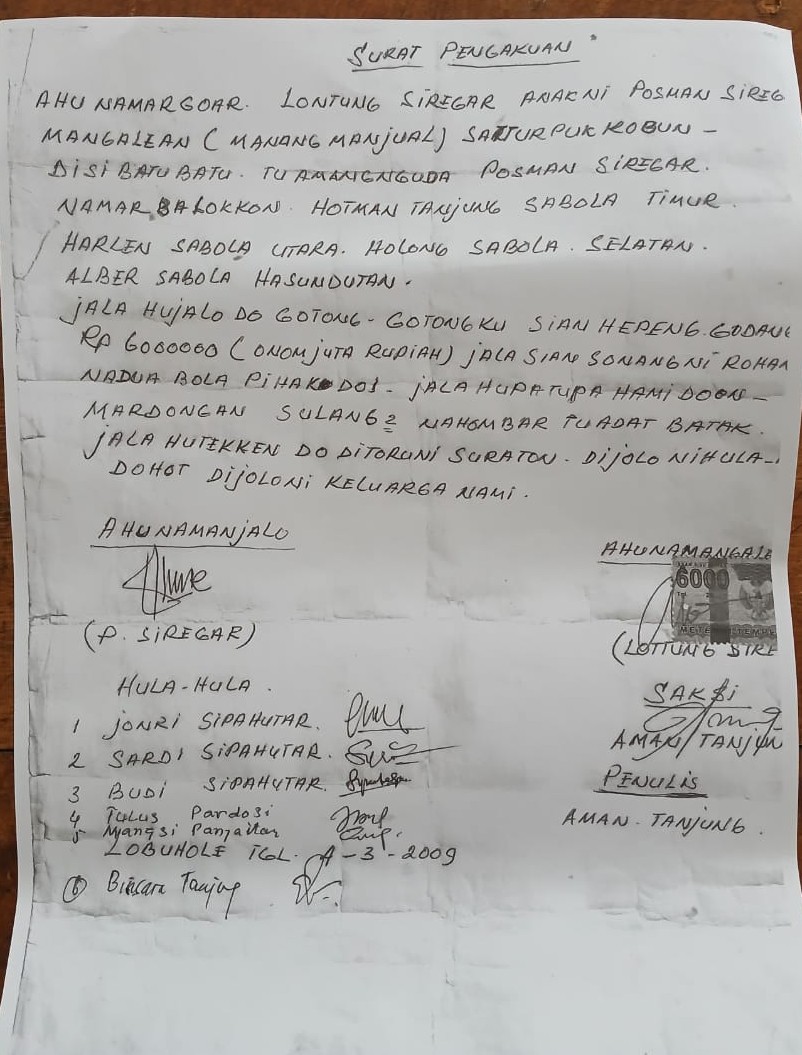 SURAT PENGAKUAN
AHU NAMARGOAR. LONTUNG SIREGAR ANAKNI POSMAN SIREG
MANGALEAN (MANANG MANJUAL) SATTURPUK KOBUN -
DISI BATU BATU. TU AMANGNGUDA POSMAN SIREGAR.
NAMAR BALOKKON. HOTMAN TANJUNG SABOLA TIMUR.
HARLEN SABOLA UTARA. HOLONG SABOLA. SELATAN.
ALBER SABOLA HASUNDUTAN.
JALA HUJALO DO GOTONG-GOTONGKU SIAN HEPENG.GODANG
Rp 6000000 (ONOM JUTA RUPIAH) JALA SIAN SONANG NI ROHAN
NADUA BOLA PIHAK DOI - JALA HUPATUPA HAMI DOON -
MARDONGAN SULANG2 NAHOMBAR TU ADAT BATAK.
JALA HUTEKKEN DO DITORUNI SURATON. DIJOLO NIHULA-
DOHOT DIJOLONI KELUARGA NAMI.
AHUNAMANJALO
AHUNAMANGALE
6000
(P. SIREGAR)
(LOTTUNG SIRE
HULA-HULA.
SAKSI
1 JONRI SIPAHUTAR.
AMAN TANJUN
2 SARDI SIPAHUTAR.
3 BUDI SIPAHUTAR.
PENULIS
4 Tulus Pardosi
AMAN. TANJUNG.
5 Mangsi Panjaitan
LOBUHOLE TGL. 4-3-2009
6 Bincara Tanjung